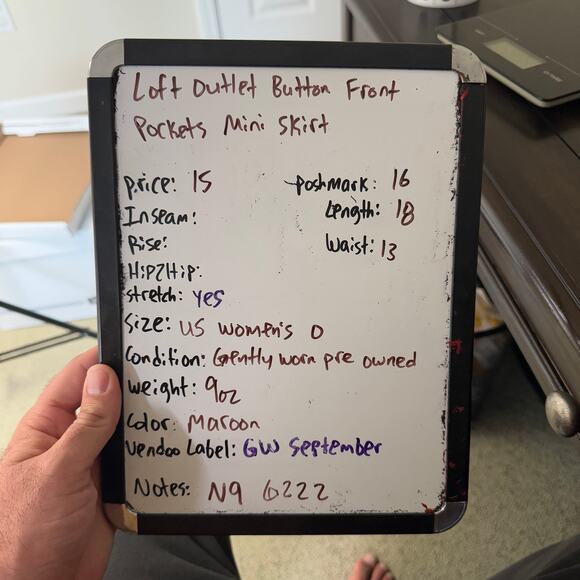 Loft Outlet Button Front
Pockets Mini Skirt
price: 15
poshmark: 16
Inseam:
Length: 18
Rise:
Waist: 13
Hip2Hip:
stretch: yes
Size: US women's 0
Condition: Gently worn pre owned
weight: 9oz
Color: Maroon
Vendoo Label: GW September
Notes: N9 6222